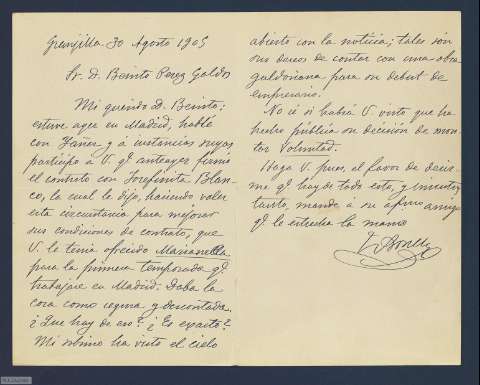 Grinjilla 30 Agosto 1905
Sr. D. Benito Perez Galdós
Mi querido D. Benito:
estuve ayer en Madrid, hablé
con Yañez y a instancias suyas
participo a V. q. anteayer firmó
el contrato con Josefinita Blan-
co, la cual le dijo, haciendo valer
esta circunstancia para mejorar
sus condiciones de contrato, que
V. le tenia ofrecido Marianella
para la primera temporada q.
trabajase en Madrid. Daba la
cosa como segura y descontada.
¿Que hay de eso? ¿Es exacto?
Mi sobrino ha visto el cielo
abierto con la noticia; tales son
sus deseos de contar con una obra
galdosiana para su debut de
empresario.
No sé si habrá V. visto que ha
hecho pública su decisión de mon-
tar Voluntad.
Haga V. pues, el favor de decir-
me q. hay de todo esto, y mientras
tanto, mande á su afmo amigo
q. le estrecha la mano